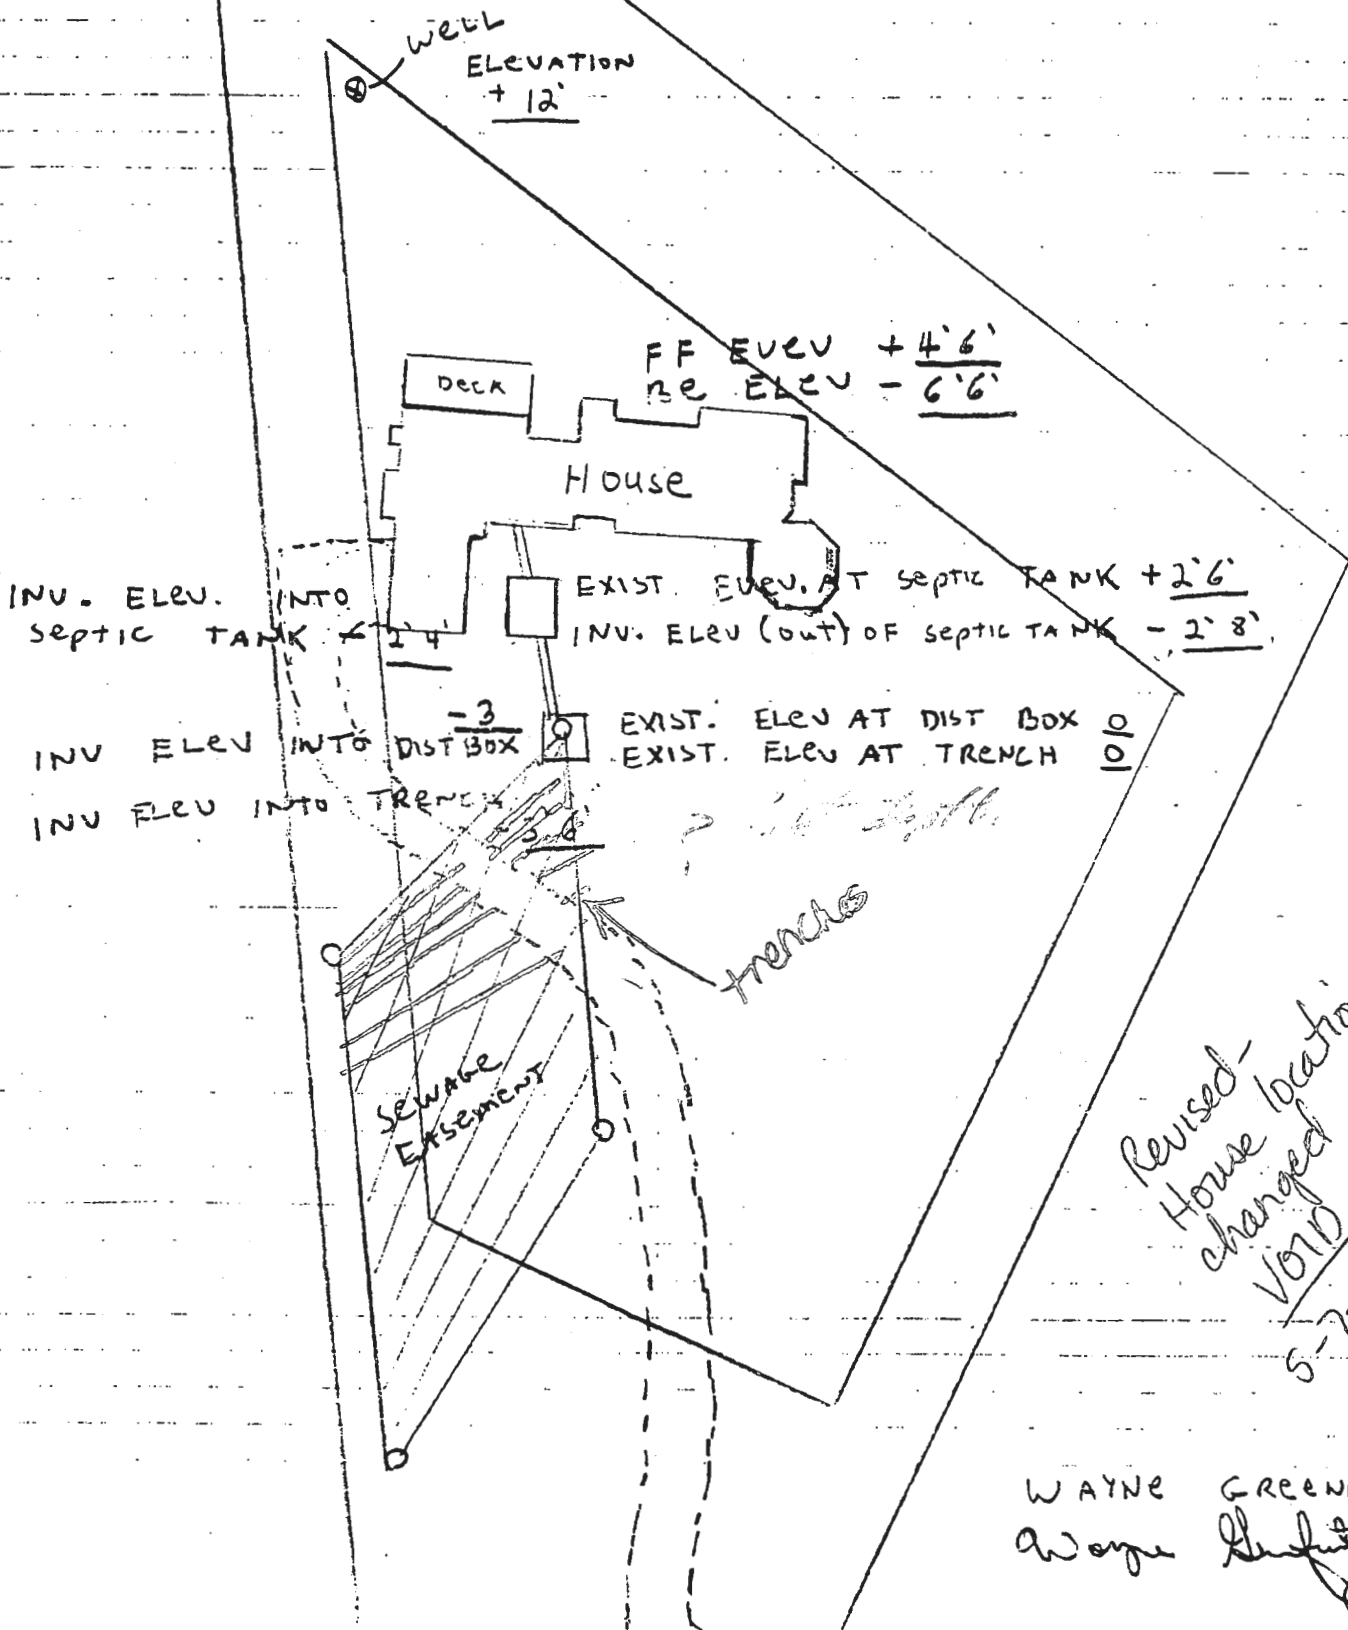 WELL
ELEVATION
+ 12'
FF EVEV + 4'6'
BE ELEV - 6'6'
DECK
House
INV. ELEV. INTO
SEPTIC TANK - 2'4'
EXIST. EVEV. AT SEPTIC TANK + 2'6'
INV. ELEV (out) OF SEPTIC TANK - 2'8'
INV ELEV INTO DIST BOX -3
EXIST. ELEV AT DIST BOX 0
EXIST. ELEV AT TRENCH 0
INV ELEV INTO TRENCH
3 6
?
trenches
SEWAGE
EASEMENT
Revised-
House locatio
changed
VOID
5-2
WAYNE GREEN
Wayne